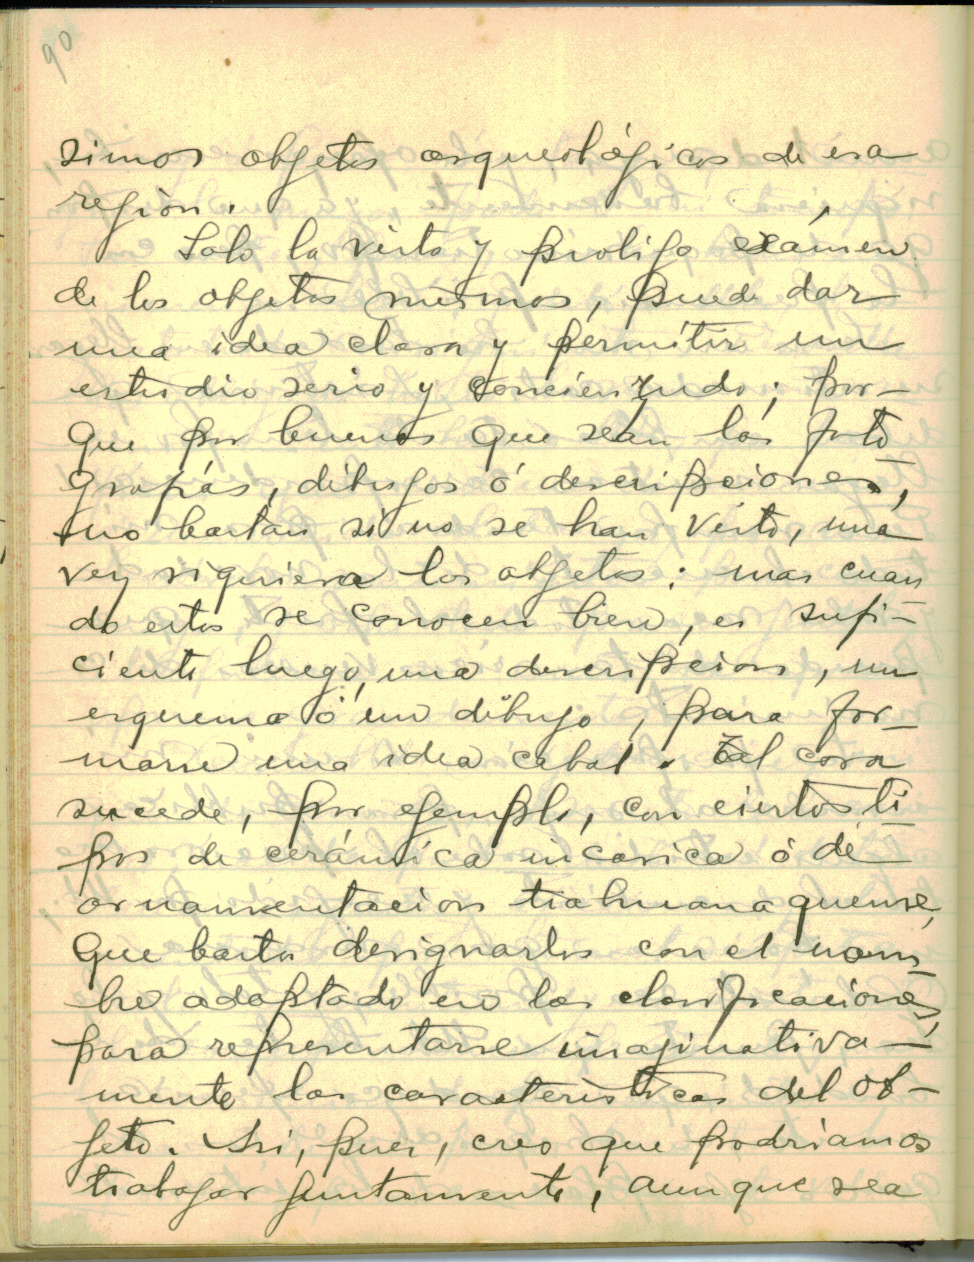 90
simos objetos arqueológicos de esa
región.
Solo la vista y prolijo exámen
de los objetos mismos, puede dar
una idea clara y permitir un
estudio serio y concienzudo; por-
que por buenas que sean las foto-
grafías, dibujos ó descripciones,
no bastan si no se han visto, una
vez siquiera los objetos; mas cuan
do estos se conocen bien, es sufi-
ciente luego, una descripcion, un
esquema ó un dibujo, para for-
marse una idea cabal. Tal cosa
sucede, por ejemplo, con ciertos ti-
pos de cerámica incasica ó de
ornamentacion tiahuanaquense,
que basta designarlos con el nom-
bre adoptado en las clasificaciones,
para representarse imajinativa-
mente las caracteristicas del ob-
jeto. Asi, pues, creo que podriamos
trabajar juntamente, aunque sea